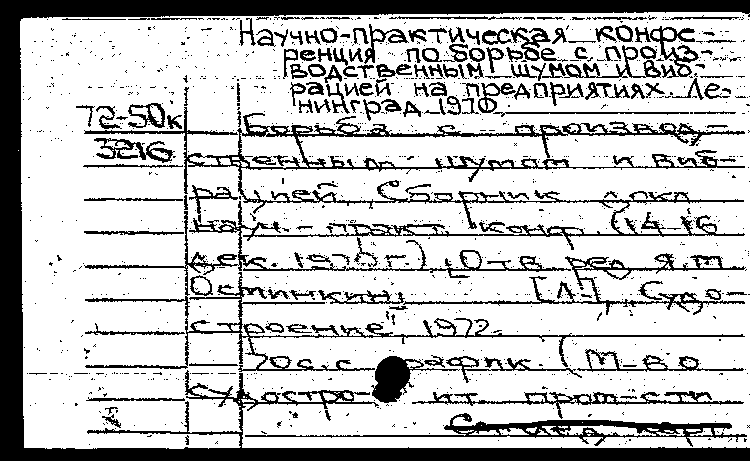 Научно-практическая конфе-
ренция по борьбе с произ-
водственным шумом и виб-
рацией на предприятиях. Ле-
нинград, 1970.
72-50к Борьба с производ-
3216 ственным шумом и виб-
рацией. Сборник докл.
науч.-практ. конф. (14-16
дек. 1970 г.). [Отв. ред. Я.М.
Остинкин]. [Л.], "Судо-
строение", 1972.
70 с. с график. (М-во
судостро- ит. пром-сти
След. карт.